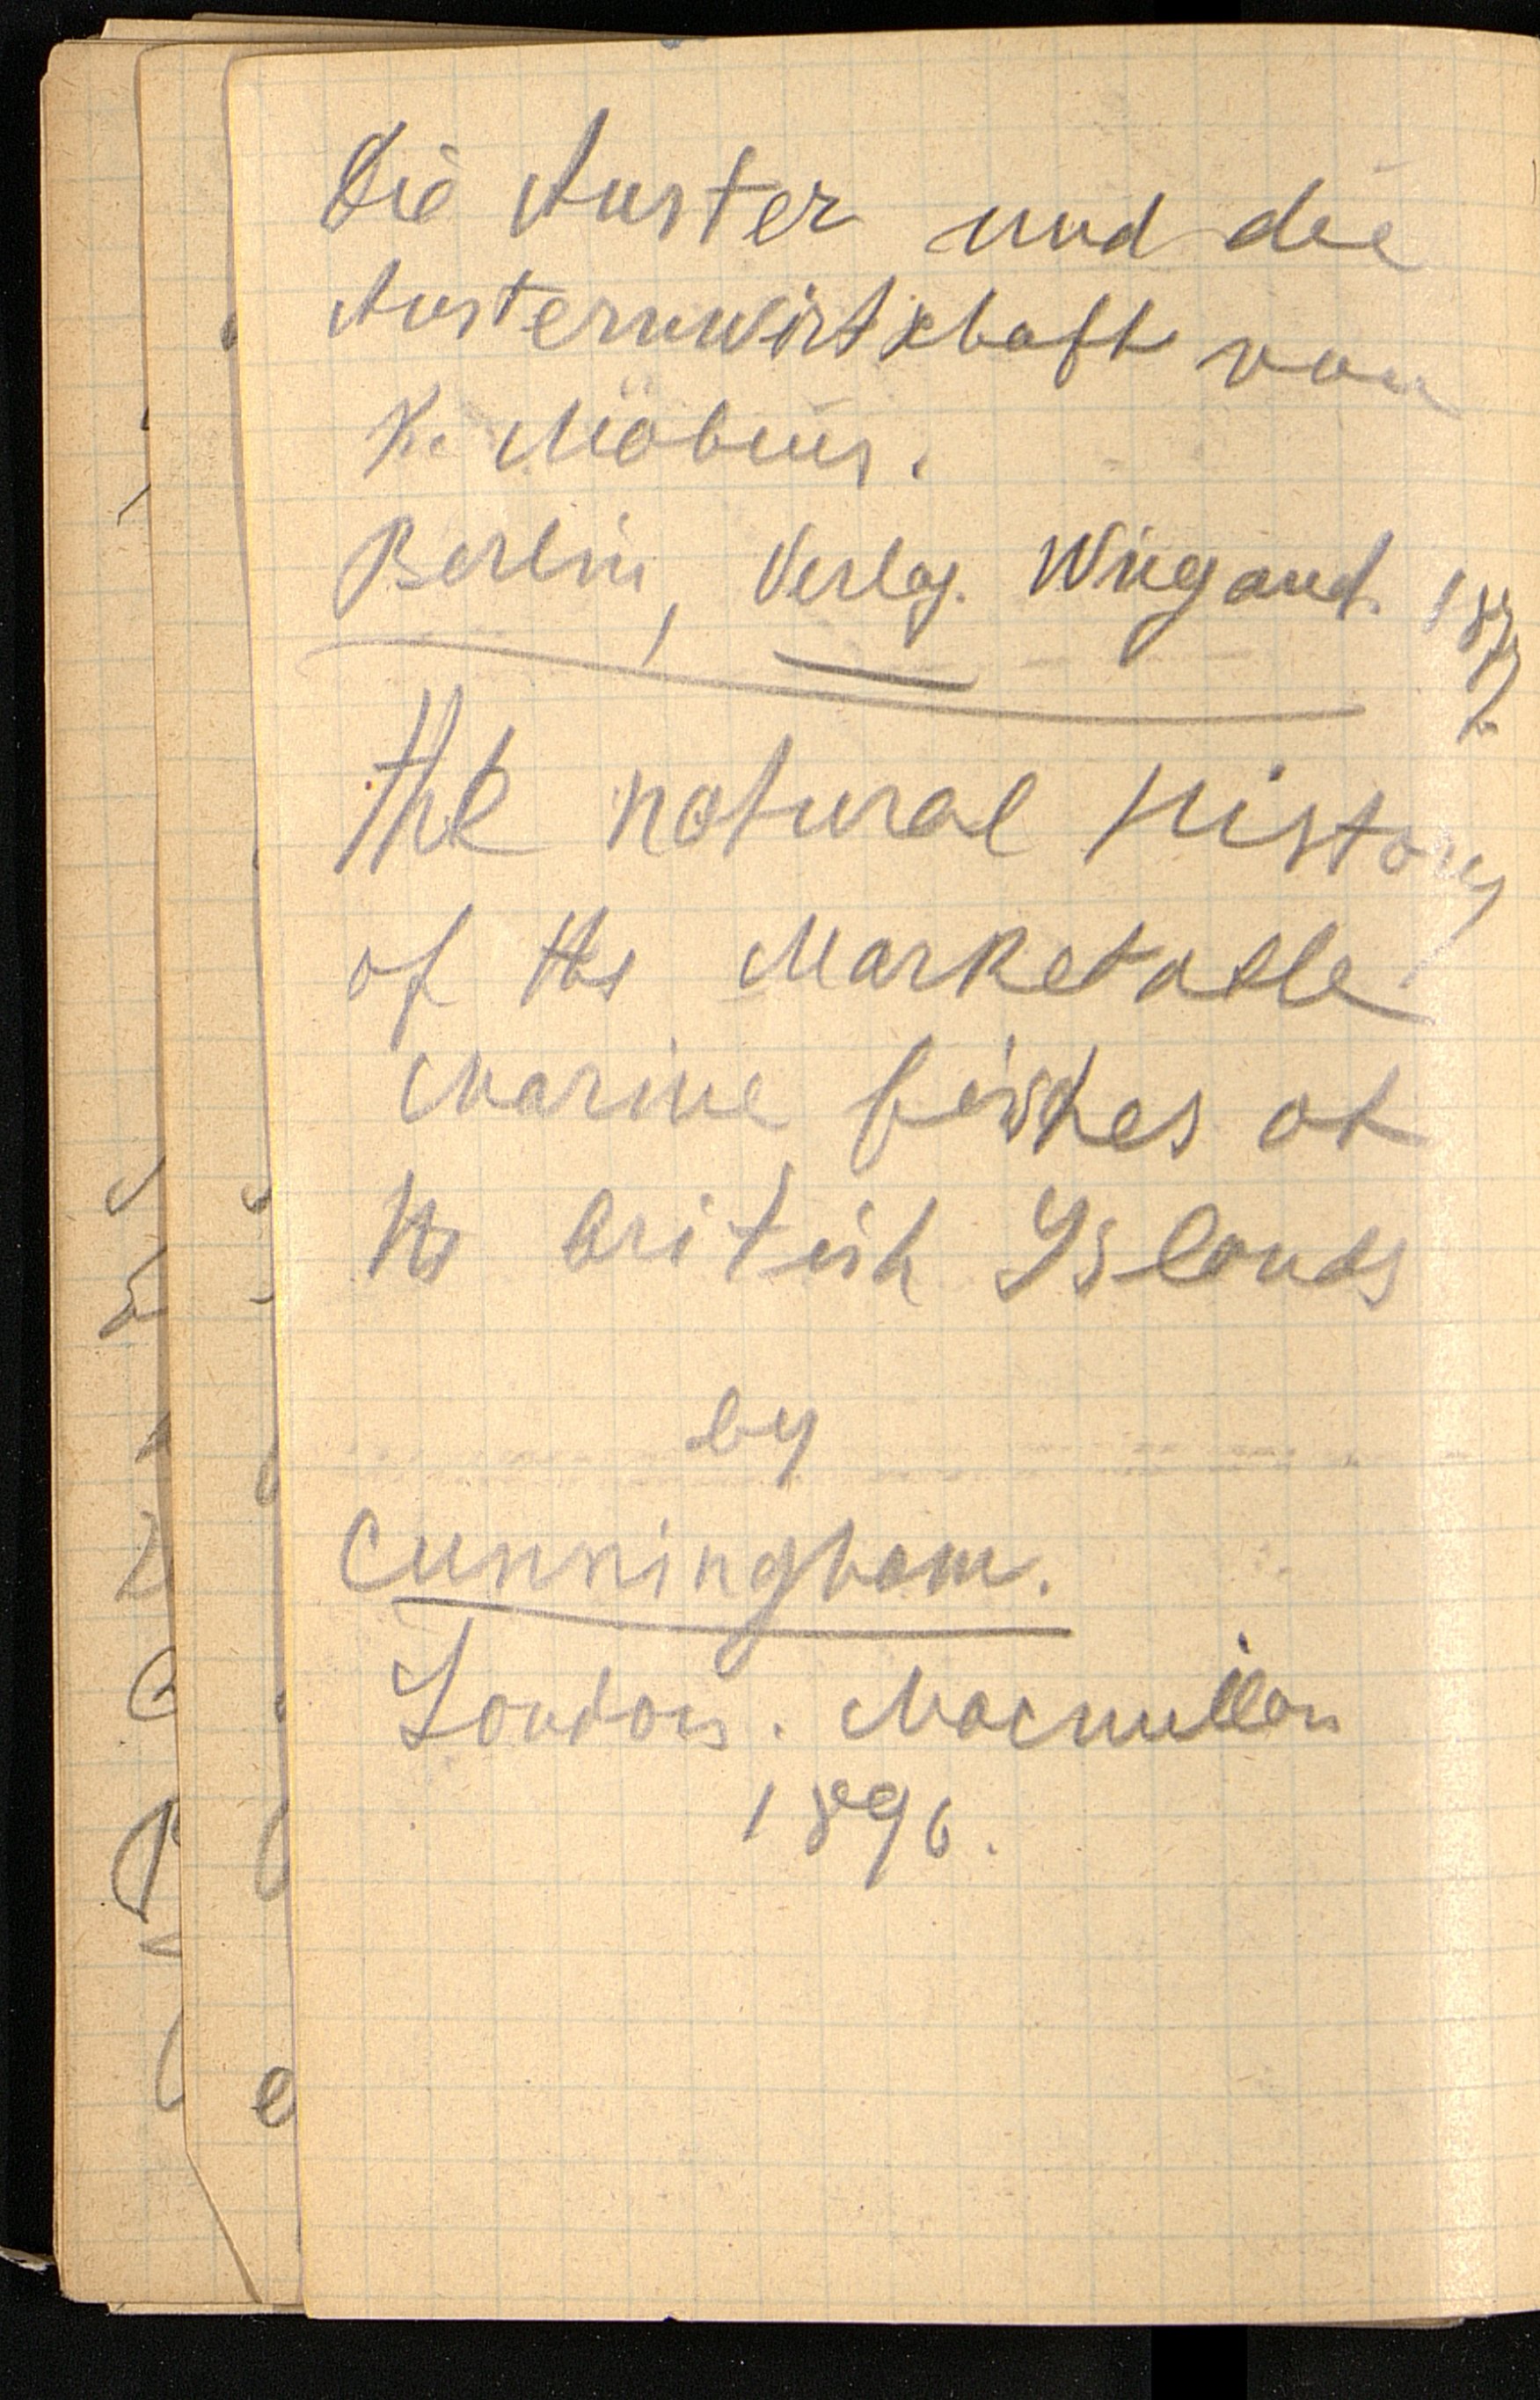 Die Auster und die
Austernwirtschaft von
K. Möbius.
Berlin, Verlag. Wiegand. 1877.
The natural history
of the Marketable
Marine fishes of
the british Yslands
by
Cunningham.
London. Macmillan
1896.